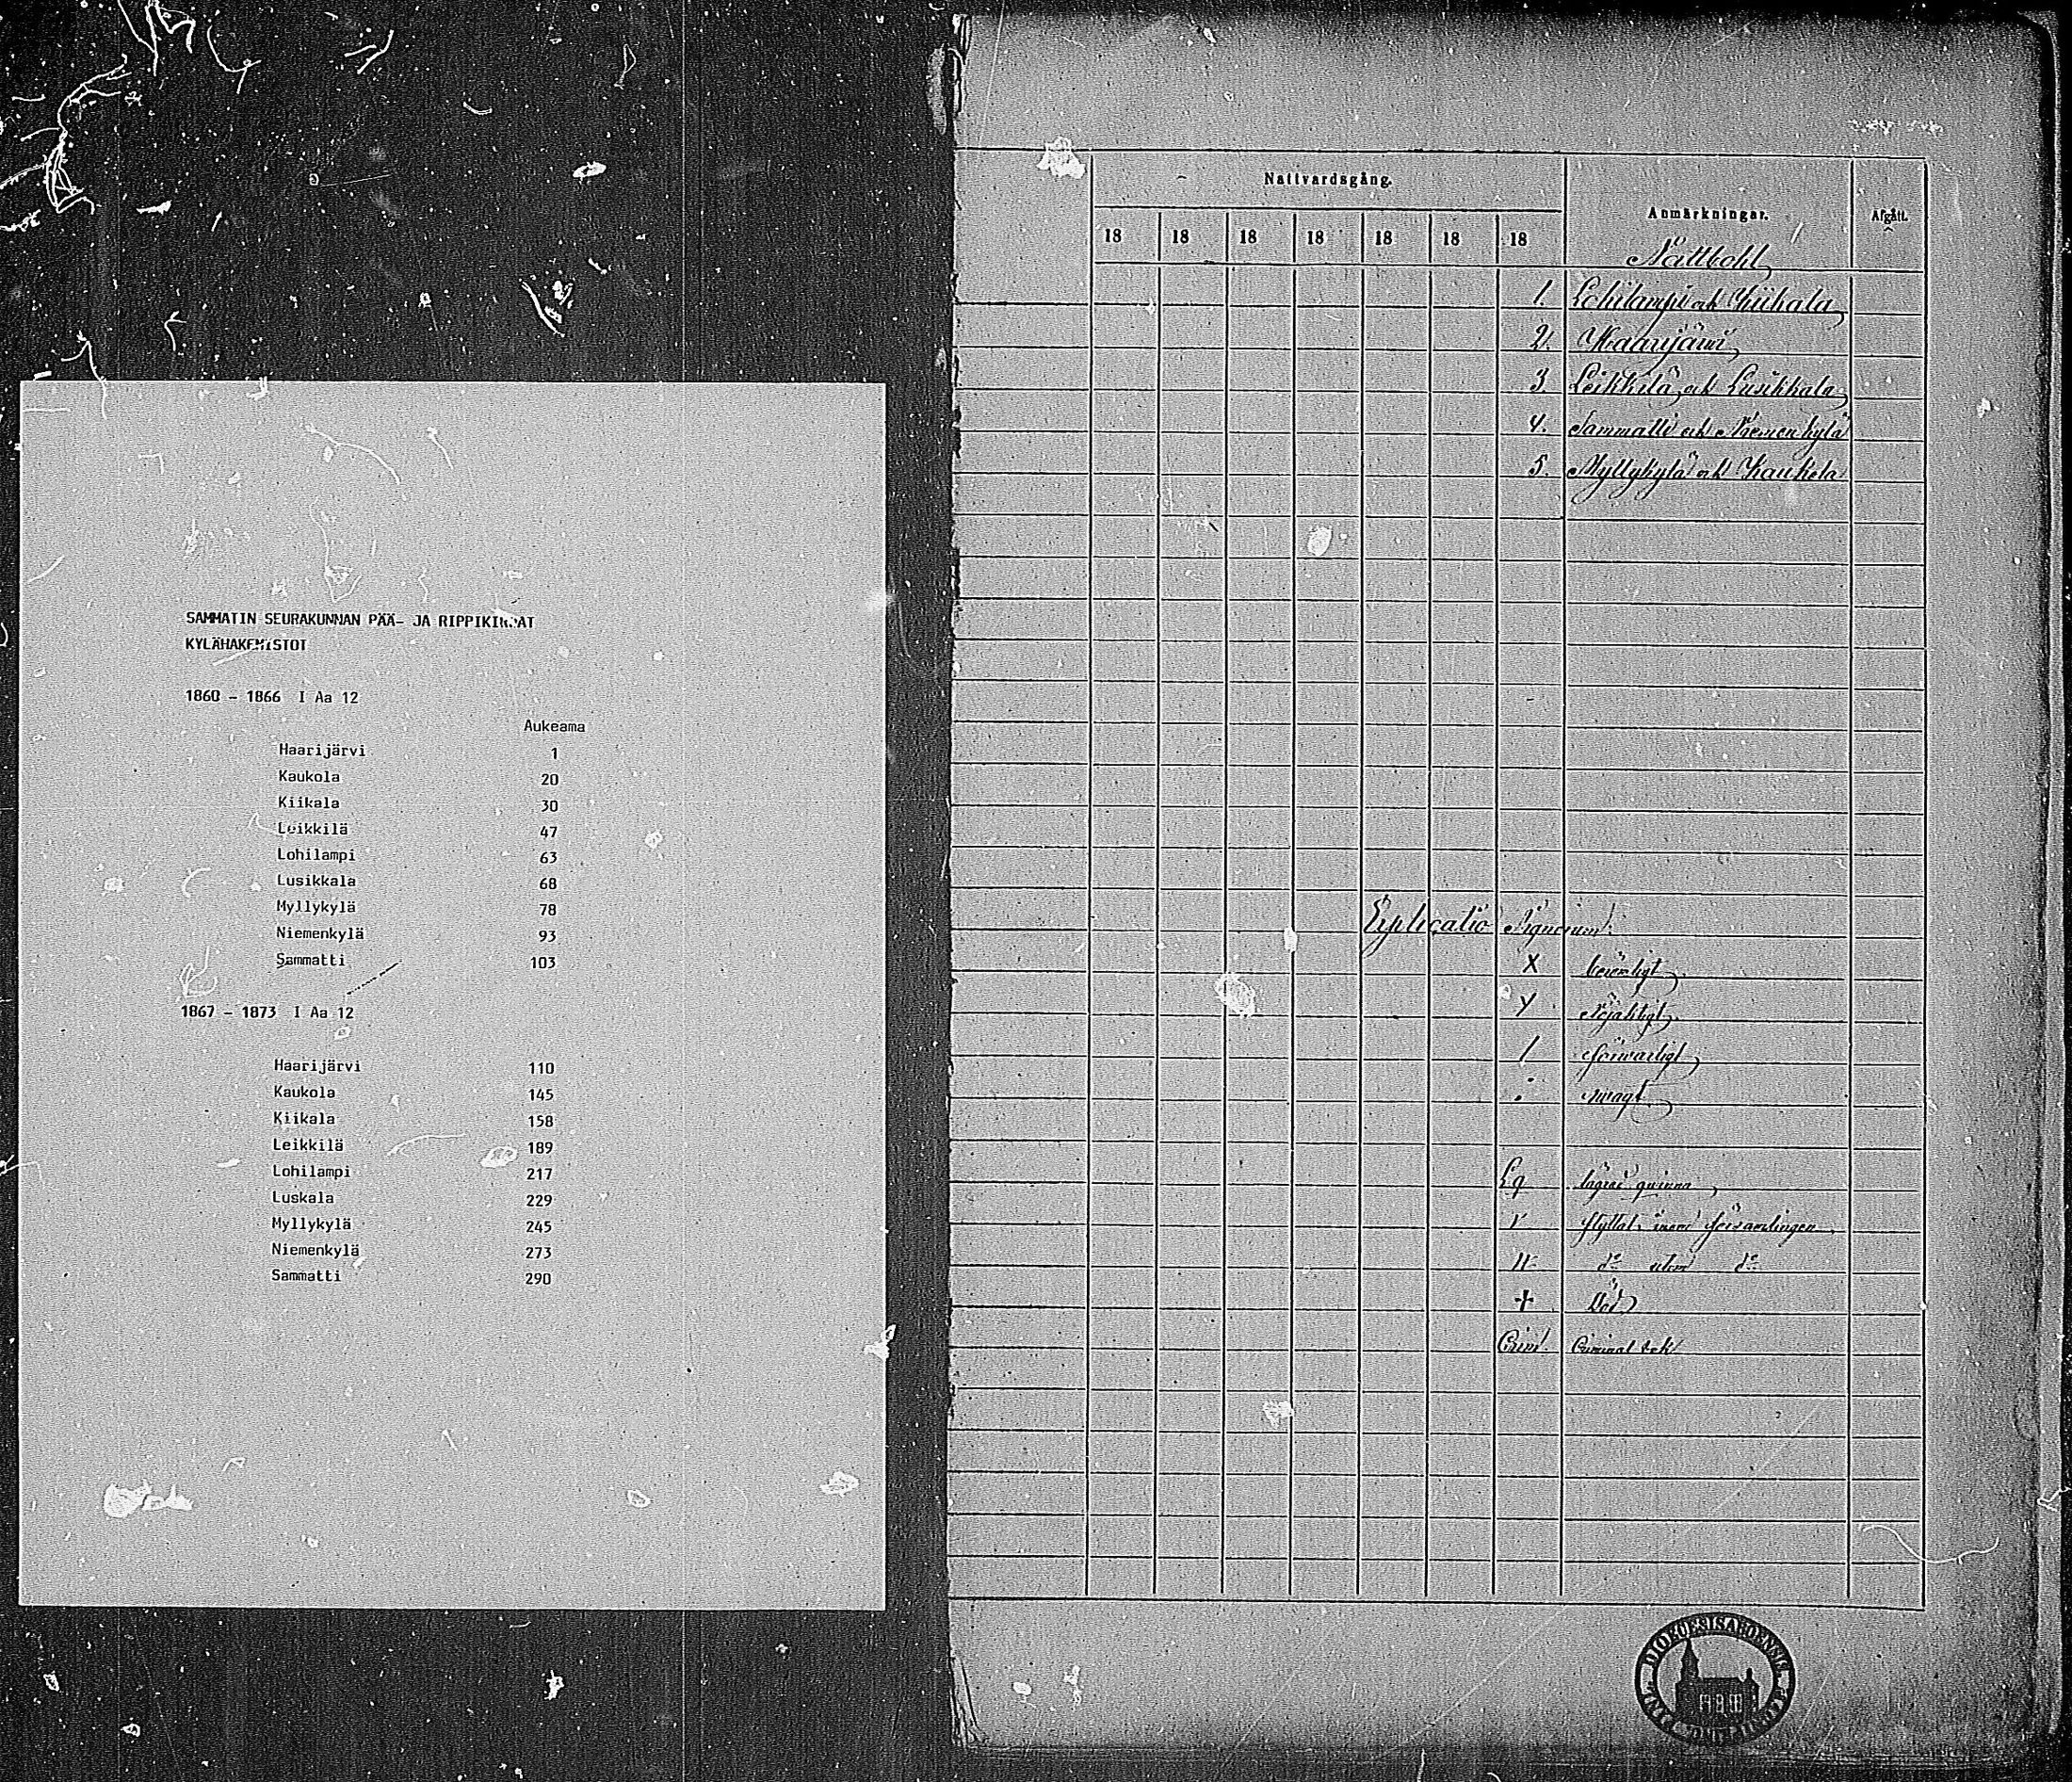 SAMMATIN SEURAKUNNAN PÄÄ- JA RIPPIKIRJAT
KYLÄHAKEMISTOT
1860 - 1866 I Aa 12
Aukeama
Haarijärvi 1
Kaukola 20
Kiikala 30
Leikkilä 47
Lohilampi 63
Lusikkala 68
Myllykylä 78
Niemenkylä 93
Sammatti 103
1867 - 1873 I Aa 12
Haarijärvi 110
Kaukola 145
Kiikala 158
Leikkilä 189
Lohilampi 217
Luskala 229
Myllykylä 245
Niemenkylä 273
Sammatti 290
Nattvardsgång. Anmärkningar. Afgått.
18 18 18 18 18 18 18
1. Lohilampi och Kiikala
2. Haarijärvi
3 Leikkilä och Lusikkala
4. Sammatti och Niemenkylä
5. Myllykylä och Kaukola
Explicatio Signorum
X berömligt
Y Nöjaktigt
/ försvarligt
. svagt
Lq lägrad qvinna
flyttat inom församlingen
do utom do
+ Död
Crim. Criminal bok